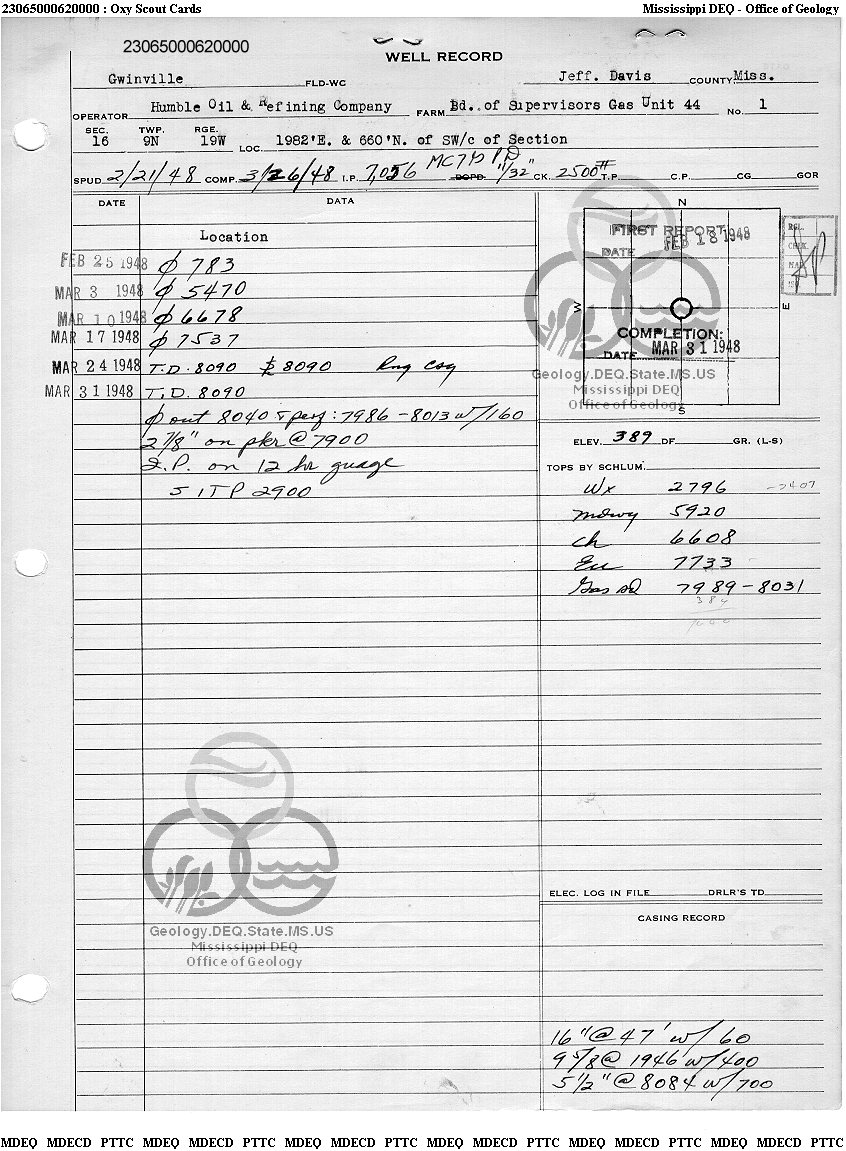 23065000620000 : Oxy Scout Cards Mississippi DEQ - Office of Geology
23065000620000
WELL RECORD
Gwinville FLD-WC Jeff. Davis COUNTY Miss.
OPERATOR Humble Oil & Refining Company FARM Bd. of Supervisors Gas Unit 44 No. 1
SEC. TWP. RGE.
16 9N 19W LOC. 1982'E. & 660'N. of SW/c of Section
SPUD 2/21/48 COMP. 3/26/48 I.P. 7,056 MCFPD BOPD 11/32" CK. 2500# T.P. C.P. CG GOR
DATE DATA
Location
FEB 25 1948 ϕ 783
MAR 3 1948 ϕ 5470
MAR 10 1948 ϕ 6678
MAR 17 1948 ϕ 7537
MAR 24 1948 T.D. 8090 8090 Rng Csg
MAR 31 1948 T.D. 8090
ϕ out 8040 & perf: 7986 - 8013 w/160
2 7/8" on pkr @ 7900
I.P. on 12 hr guage
SITP 2900
N
FIRST REPORT
DATE FEB 18 1948
W E
COMPLETION:
DATE MAR 31 1948
S
Geology.DEQ.State.MS.US
Mississippi DEQ
Office of Geology
ELEV. 389 DF GR. (L-S)
TOPS BY SCHLUM.
Wx 2796 -2407
Mdwy 5920
Ch 6608
Eu 7733
Gas sd 7989 - 8031
Geology.DEQ.State.MS.US
Mississippi DEQ
Office of Geology
ELEC. LOG IN FILE DRLR'S TD
CASING RECORD
16" @ 47' w/ 60
9 5/8 @ 1946 w/400
5 1/2" @ 8084 w/700
MDEQ MDECD PTTC MDEQ MDECD PTTC MDEQ MDECD PTTC MDEQ MDECD PTTC MDEQ MDECD PTTC MDEQ MDECD PTTC